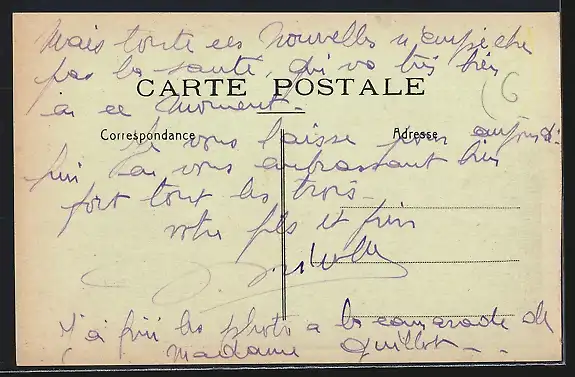 Mais toute ces Nouvelles n'empèche
pas la santé, qui va très bien
CARTE POSTALE
en ce moment.
Correspondance
Adresse
Je vous laisse pour aujourd'
hui en vous embrassant bien
fort tout les trois.
votre fils et frère
J'ai fini les photo a la camarade de
Madame Guillot.
6